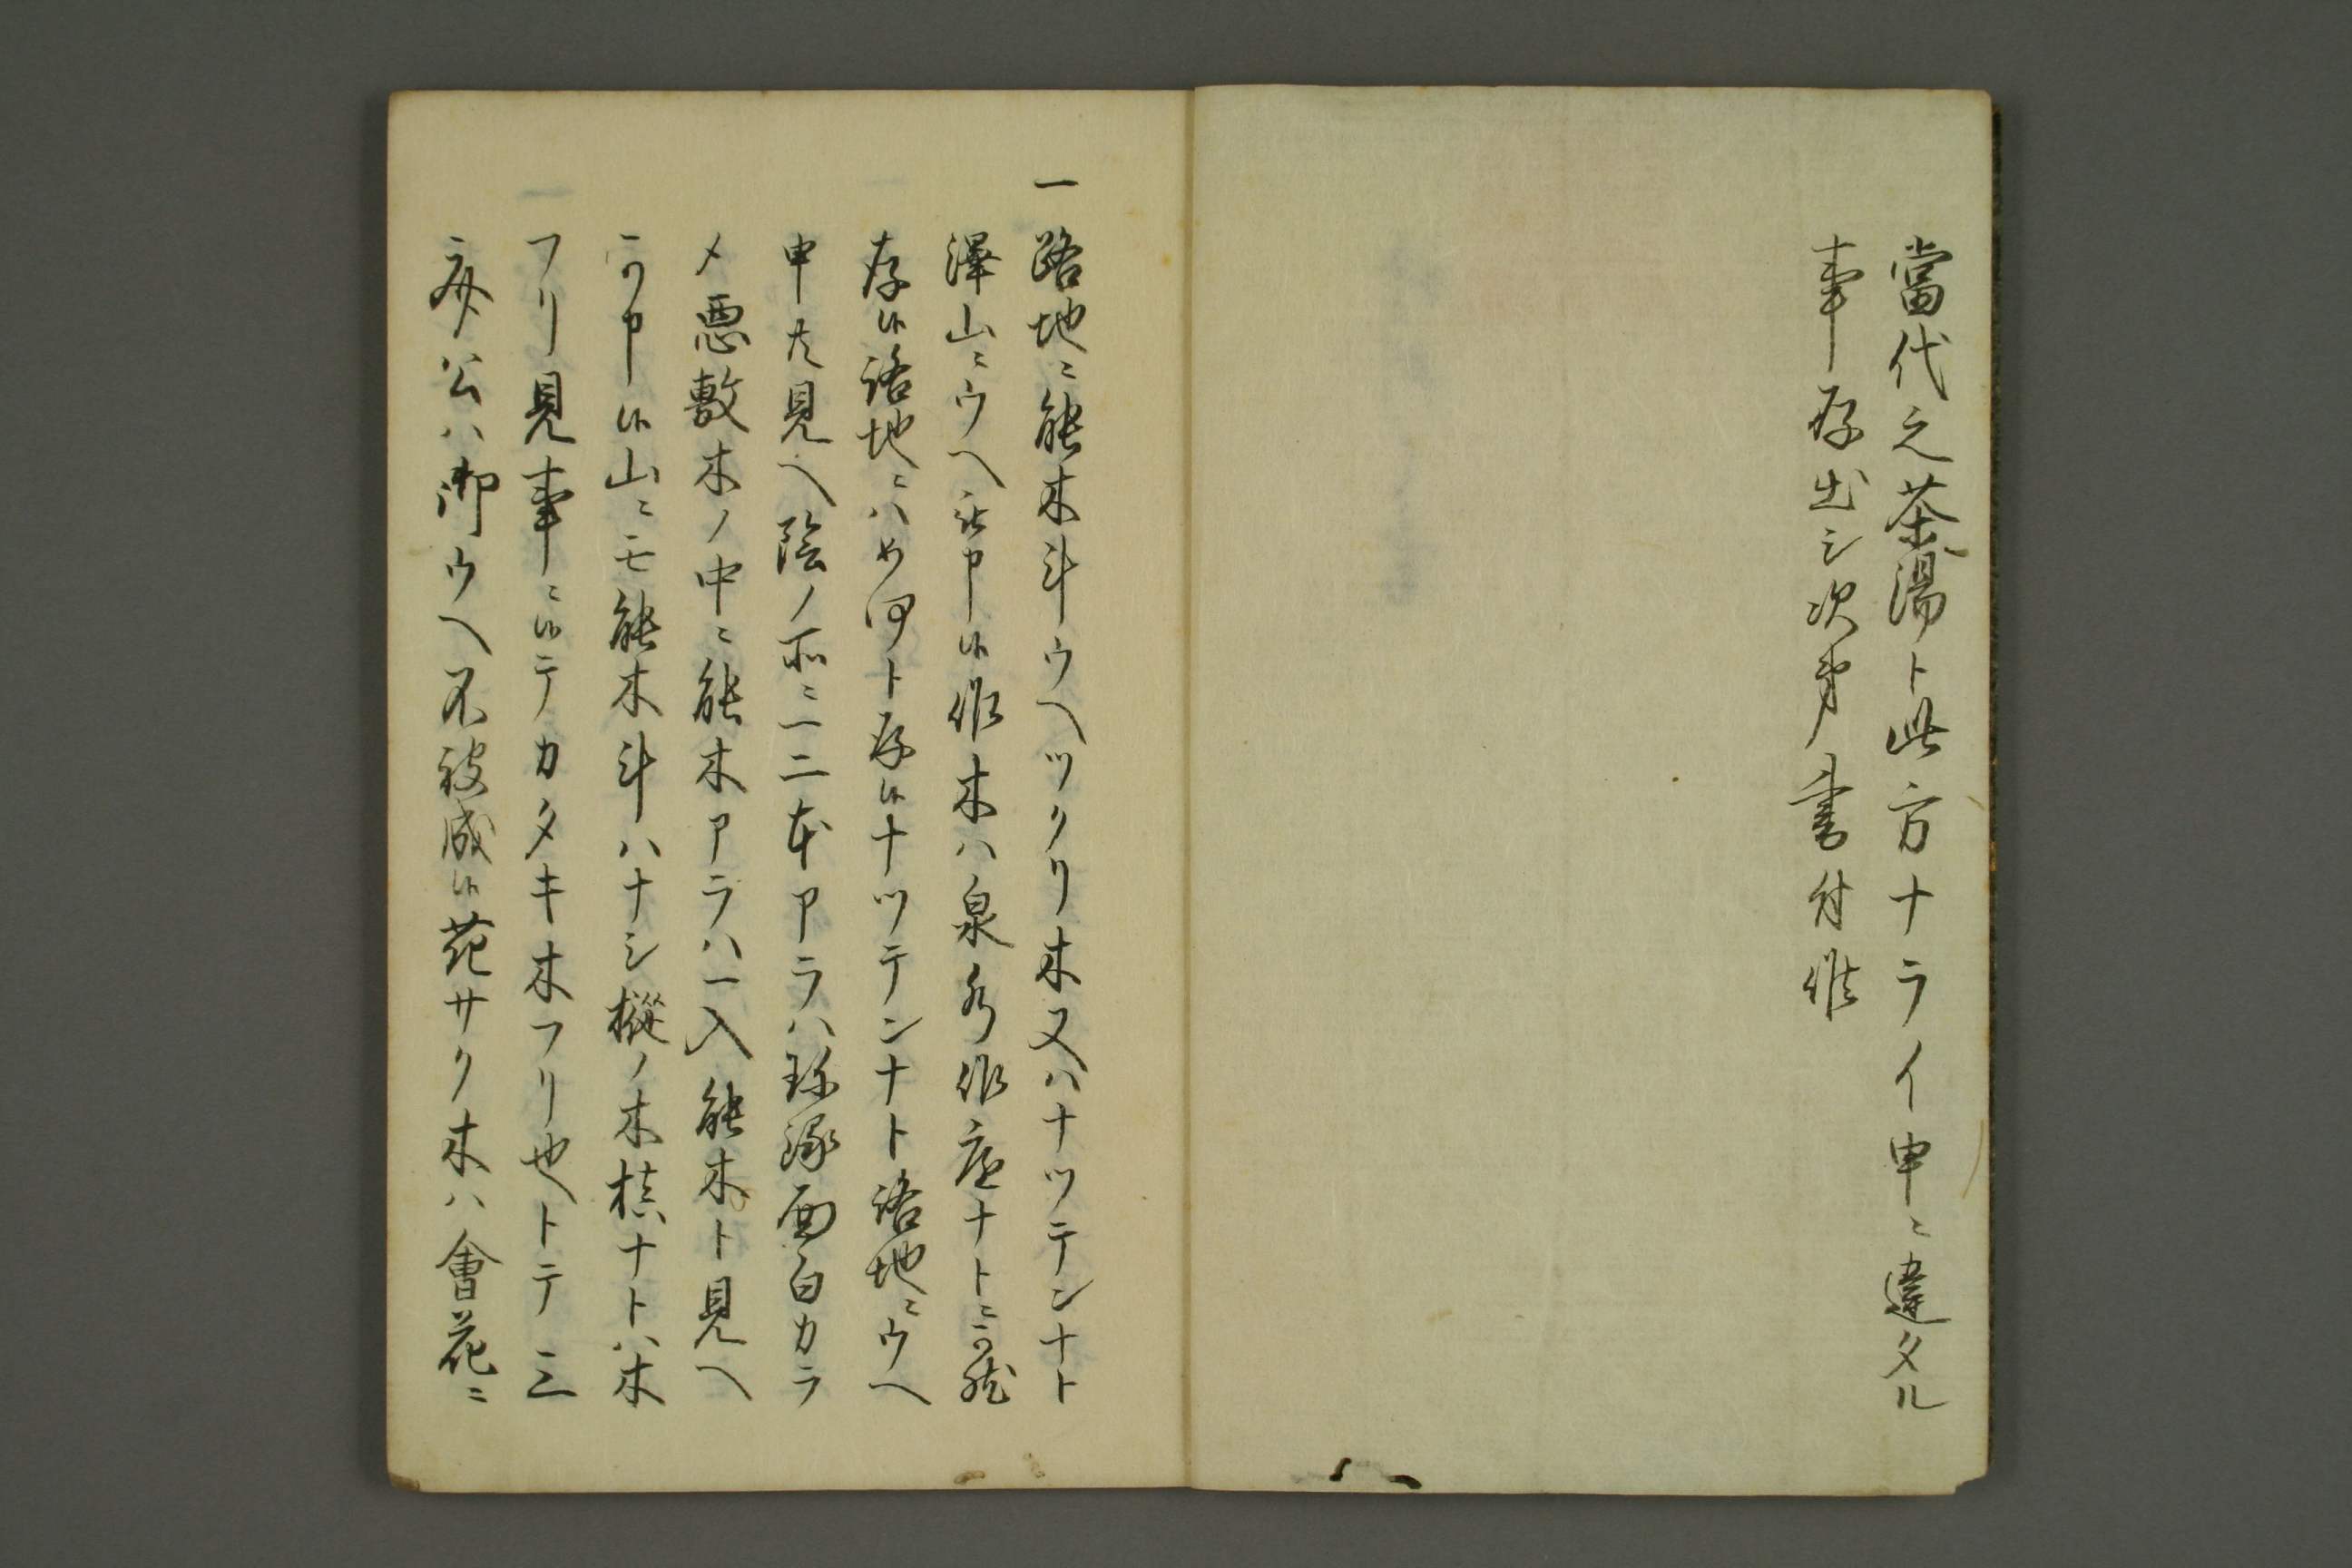 當代之茶湯ト此方ナライ申ニ違タル
事存出シ次第書付候
一路地ニ能木斗ウヘツクリ木又ハナツテンナト
澤山ニウヘ申候作木ハ泉水作庭ナトニ可然
存候路地ニハ如何ト存候ナツテンナト路地ニウヘ
申共見ヘ陰ノ所ニ一二本アラハ面白カラ
メ悪敷木ノ中ニ能木アラハ一入能木ト見ヘ
可申候山ニモ能木斗ハナシ樅ノ木槙ナトハ木
フリ見事ニ候テカタキ木フリ也トテ三
斎公ハ御ウヘ不被成候花サク木ハ會花ニ